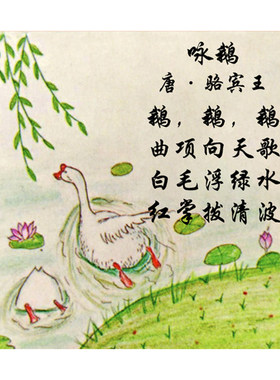 咏鹅
唐·骆宾王
鹅，鹅，鹅
曲项向天歌
白毛浮绿水
红掌拨清波